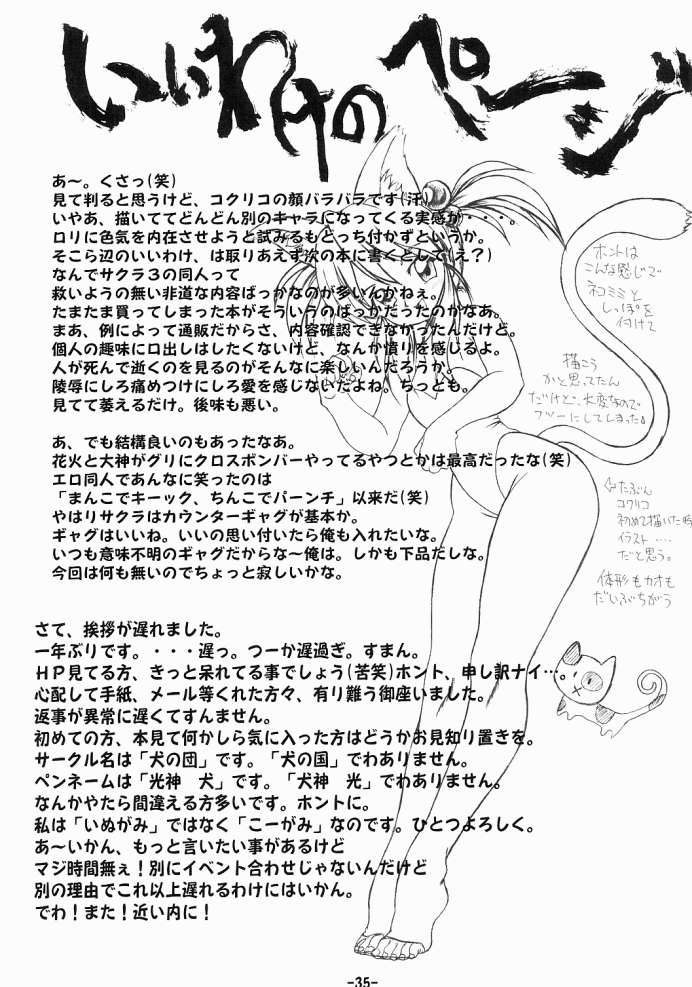 いいわけのページ
あ～。くさっ(笑)
見て判ると思うけど、コクリコの顔バラバラです(汗)
いやあ、描いててどんどん別のキャラになってくる実感が・・・。
ロリに色気を内在させようと試みるもどっち付かずというか。
そこら辺のいいわけ、は取りあえず次の本に書くとして(え？)
なんでサクラ３の同人って
救いようの無い非道な内容ばっかなのが多いんかねぇ。
たまたま買ってしまった本がそういうのばっかだったのかなあ。
まあ、例によって通販だからさ、内容確認できなかったんだけど。
個人の趣味に口出しはしたくないけど、なんか憤りを感じるよ。
人が死んで逝くのを見るのがそんなに楽しいんだろうか。
陵辱にしろ痛めつけにしろ愛を感じないだよね。ちっとも。
見てて萎えるだけ。後味も悪い。
あ、でも結構良いのもあったなあ。
花火と大神がグリにクロスボンバーやってるやつとかは最高だったな(笑)
エロ同人であんなに笑ったのは
「まんこでキーック、ちんこでパーンチ」以来だ(笑)
やはりサクラはカウンターギャグが基本か。
ギャグはいいね。いいの思い付いたら俺も入れたいな。
いつも意味不明のギャグだからな～俺は。しかも下品だしな。
今回は何も無いのでちょっと寂しいかな。
さて、挨拶が遅れました。
一年ぶりです。・・・遅っ。つーか遅過ぎ。すまん。
ＨＰ見てる方、きっと呆れてる事でしょう(苦笑)ホント、申し訳ナイ…。
心配して手紙、メール等くれた方々、有り難う御座いました。
返事が異常に遅くてすんません。
初めての方、本見て何かしら気に入った方はどうかお見知り置きを。
サークル名は「犬の団」です。「犬の国」でわありません。
ペンネームは「光神　犬」です。「犬神　光」でわありません。
なんかやたら間違える方多いです。ホントに。
私は「いぬがみ」ではなく「こーがみ」なのです。ひとつよろしく。
あ～いかん、もっと言いたい事があるけど
マジ時間無ぇ！別にイベント合わせじゃないんだけど
別の理由でこれ以上遅れるわけにはいかん。
でわ！また！近い内に！
ホントは
こんな感じで
ネコミミと
しっぽを
付けて
描こう
かと思ってたん
だけど、大変なので
フツーにしてしまった。
⇦たぶん
コクリコ
初めて描いた時
イラスト‥‥
だと思う。
体形もカオも
だいぶちがう
-35-